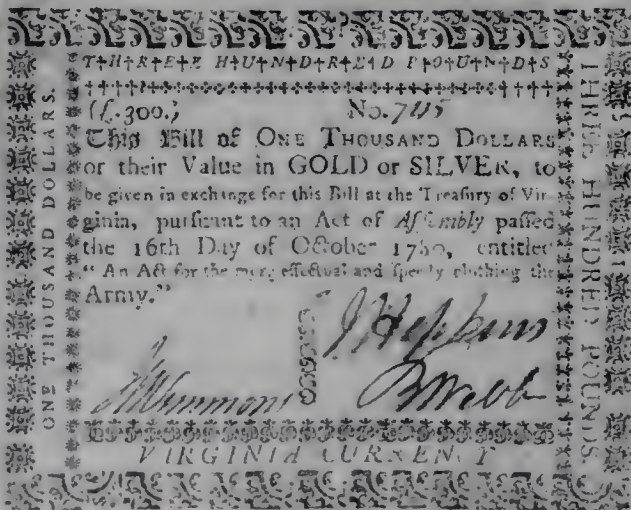 T†H†R†E†E H†U†N†D†R†E†D P†O†U†N†D†S
(£.300.) No. 7415
This Bill of ONE THOUSAND DOLLARS
or their Value in GOLD or SILVER, to
be given in exchange for this Bill at the Treaſury of Vir-
ginia, purſuant to an Act of Aſſembly paſſed
the 16th Day of October 1780, entitled
“ An Act for the more effectual and ſpeedy clothing the
Army.”
J Hopkins
B Webb
VIRGINIA CURRENCY
ONE THOUSAND DOLLARS.
THREE HUNDRED POUNDS